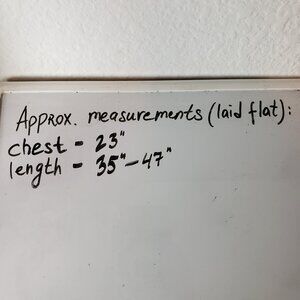 Approx. measurements (laid flat):
chest - 23"
length - 35" - 47"